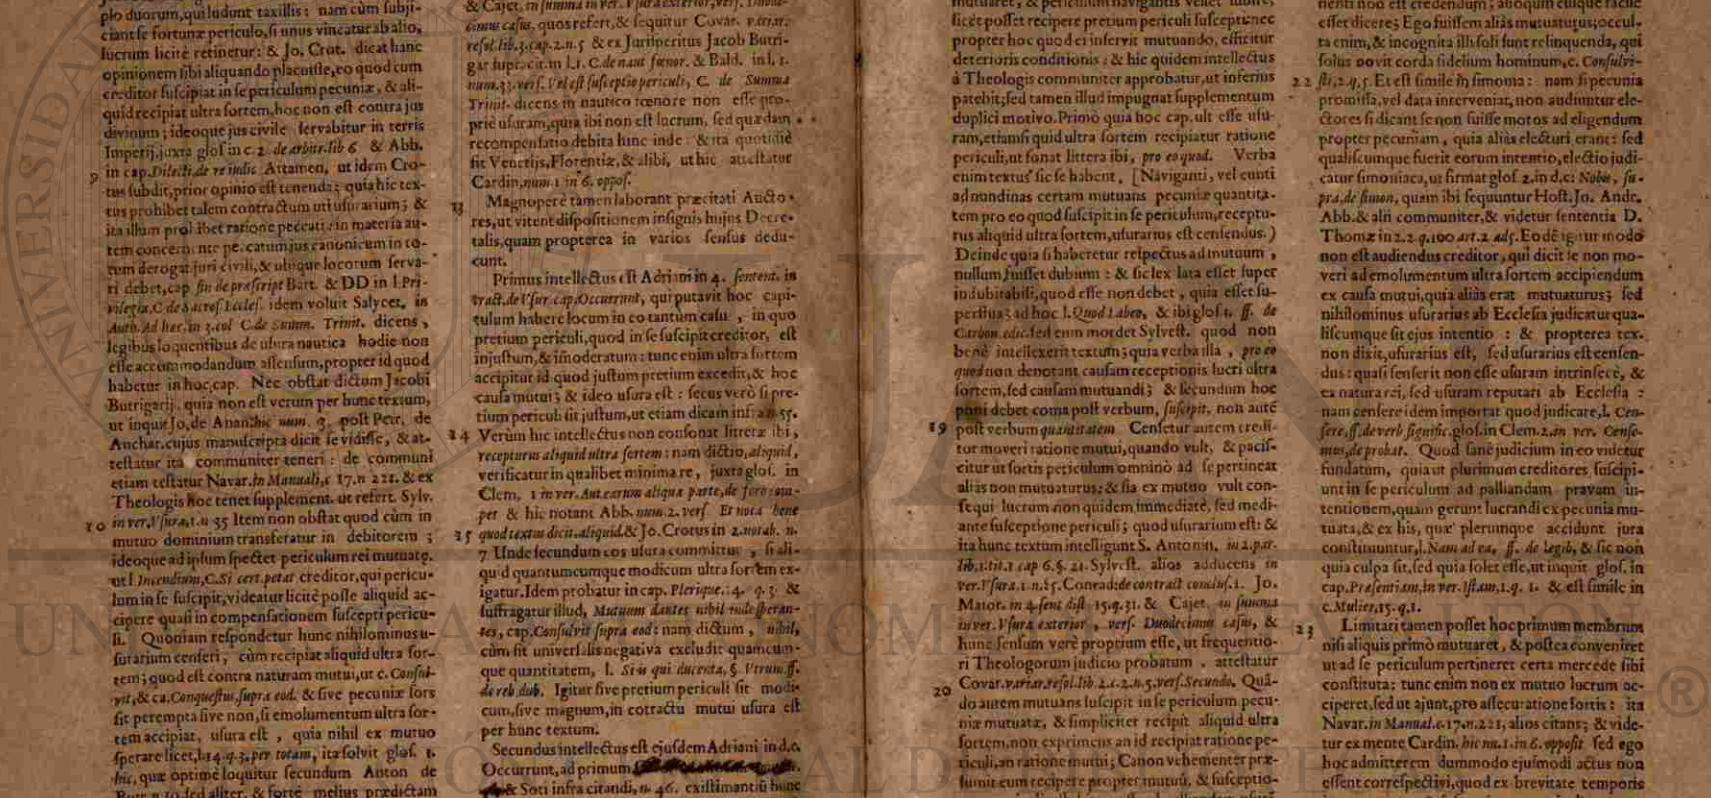 plo duorum, qui ludunt taxillis: nam cùm subji-
ciant se fortunæ periculo, si unus vincatur ab alio,
lucrum licitè retinetur: & Jo, Crot. dicat hanc
opinionem sibi aliquando placuisse, eo quod cum
creditor suscipiat in se periculum pecuniæ, & ali-
quid recipiat ultra sortem, hoc non est contra jus
divinum; ideoque jus civile servabitur in terris
Imperij, juxta glos. in c. 2. de arbitr. lib 6 & Abb.
9 in cap. Dilecti, de re judic Attamen, ut idem Cro-
tus subdit, prior opinio est tenenda; quia hic tex-
tus prohibet talem contractum uti usurarium; &
ita illum prohibet ratione peccati: in materia au-
tem concernente peccatum jus canonicum in to-
tum derogat juri civili, & ubique locorum serva-
ri debet, cap fin de præscript Bart. & DD in l. Pri-
vilegia, C de Sacros. Eccles. idem voluit Salycet, in
Auth. Ad hec, in 3. col C. de Summ. Trinit. dicens,
legibus loquentibus de usura nautica hodie non
esse accommodandum assensum, propter id quod
habetur in hoc cap. Nec obstat dictum Jacobi
Butrigarij, quia non est verum per hunc textum,
ut inquit Jo, de Anan. hic num. 3. post Petr. de
Anchar. cujus manuscripta dicit se vidisse, & at-
testatur ita communiter teneri: de communi
etiam testatur Navar. in Manuali, c 17. n 221. & ex
Theologis hoc tenet supplement. ut refert. Sylv.
10 in ver. Usura, 1. n 35 Item non obstat quod cùm in
mutuo dominium transferatur in debitorem;
ideoque ad ipsum spectet periculum rei mutuatæ.
ut l. Incendium, C. Si cert. petat creditor, qui pericu-
lum in se suscipit, videatur licitè posse aliquid ac-
cipere quasi in compensationem suscepti pericu-
li. Quoniam respondetur hunc nihilominus u-
surarium censeri, cùm recipiat aliquid ultra sor-
tem; quod est contra naturam mutui, ut c. Consul-
vit, & ca. Conquestus, supra eod. & sive pecuniæ sors
sit perempta sive non, si emolumentum ultra sor-
tem accipiat, usura est, quia nihil ex mutuo
sperare licet, l. 14. q. 3. per totam, ita solvit glos. 1.
hic, quæ optimè loquitur secundum Anton de
Butr. n 10 sed aliter, & fortè melius prædictam
& Cajet. in summa in ver. Usura exterior, vers. Duode-
cimus casus, quos refert, & sequitur Covar. variar.
resol. lib. 3. cap. 2. n. 5 & ex Jurisperitus Jacob Butri-
gar supr. cit. in l. 1. C. de naut fœnor. & Bald. in l. 1.
num. 33. vers. Vel est susceptio periculi, C. de Summa
Trinit. dicens in nautico fœnore non esse pro-
priè usuram, quia ibi non est lucrum, sed quædam
recompensatio debita hinc inde: & ita quotidiè
fit Venetijs, Florentiæ, & alibi, ut hic attestatur
Cardin, num. 1 in 6. oppos.
13 Magnoperè tamen laborant præcitati Aucto-
res, ut vitent dispositionem insignis hujus Decre-
talis, quam propterea in varios sensus dedu-
cunt.
Primus intellectus est Adriani in 4. sentent. in
tract. de Usur cap. Occurrunt, qui putavit hoc capi-
tulum habere locum in eo tantùm casu, in quo
pretium periculi, quod in se suscipit creditor, est
injustum, & immoderatum: tunc enim ultra sortem
accipitur id quod justum pretium excedit, & hoc
causa mutui; & ideo usura est: secus verò si pre-
tium periculi sit justum, ut etiam dicam infra n. 55.
14 Verùm hic intellectus non consonat litteræ ibi,
recepturus aliquid ultra sortem: nam dictio, aliquid,
verificatur in qualibet minima re, juxta glos. in
Clem, 1 in ver. Aut earum aliqua parte, de foro com-
pet & hic notant Abb. num. 2. vers Et nota bene
15 quod textus dicit, aliquid. & Jo. Crotus in 2. notab. n.
7 Unde secundum eos usura committitur, si ali-
quid quantumcumque modicum ultra sortem ex-
igatur. Idem probatur in cap. Plerique. 14. q. 3. &
suffragatur illud, Mutuum dantes nihil inde speran-
tes, cap. Consulvit supra eod: nam dictum, nihil,
cùm sit universalis negativa excludit quamcum-
que quantitatem, l. Si is qui ducenta, §. Utrum. ff.
de reb. dub. Igitur sive pretium periculi sit modi-
cum, sive magnum, in cotractu mutui usura est
per hunc textum.
Secundus intellectus est ejusdem Adriani in d. c.
Occurrunt, ad primum
& Soti infra citandi, n. 46. existimantiũ hunc
mutuaret, & periculum navigantis vellet subire,
licèt posset recipere pretium periculi suscepti: nec
propter hoc quod ei inservit mutuando, efficitur
deterioris conditionis: & hic quidem intellectus
à Theologis communiter approbatur, ut inferius
patebit; sed tamen illud impugnat supplementum
duplici motivo. Primò quia hoc cap. ult esse usu-
ram, etiamsi quid ultra sortem recipiatur ratione
periculi, ut sonat littera ibi, pro eo quod. Verba
enim textus sic se habent. [Naviganti, vel eunti
ad nundinas certam mutuans pecuniæ quantita-
tem pro eo quod suscipit in se periculum, receptu-
rus aliquid ultra sortem, usurarius est censendus.)
Deinde quia si haberetur respectus ad mutuum,
nullum fuisset dubium: & sic lex lata esset super
indubitabili, quod esse non debet, quia esset su-
perflua; ad hoc l. Quod Labeo, & ibi glos 1. ff. de
Carbon. edic. sed eum mordet Sylvest. quod non
benè intellexerit textum; quia verba illa, pro eo
quod non denotant causam receptionis lucri ultra
sortem, sed causam mutuandi; & secundum hoc
poni debet coma post verbum, suscipit, non autẽ
19 post verbum quantitatem Censetur autem credi-
tor moveri ratione mutui, quando vult, & pacis-
citur ut sortis periculum omninò ad se pertineat
aliàs non mutuaturus: & sia ex mutuo vult con-
sequi lucrum non quidem immediatè, sed medi-
ante susceptione periculi; quod usurarium est: &
ita hunc textum intelligunt S. Antonin. in 2. par.
lib. 1. tit. 1 cap 6. §. 21. Sylvest. alios adducens in
ver. Usura. 1. n. 35. Conrad: de contract conclus. 1. Jo.
Maior. in 4. sent dist 15. q. 31. & Cajet in summa
in ver. Usura exterior, vers. Duodecimus casus, &
hunc sensum verè proprium esse, ut frequentio-
ri Theologorum judicio probatum, attestatur
Covar. variar. resol. lib 2. c. 2. n. 5. vers. Secundo. Quã-
20 do autem mutuans suscipit in se periculum pecu-
niæ mutuatæ, & simpliciter recipit aliquid ultra
sortem, non exprimens an id recipiat ratione pe-
riculi, an ratione mutui; Canon vehementer præ-
sumit eum recipere propter mutuũ, & susceptio-
nenti non est credendum; alioquin cuique facile
esset dicere; Ego fuissem aliàs mutuaturus; occul-
ta enim, & incognita illi soli sunt relinquenda, qui
solus novit corda fidelium hominum, c. Consulvi-
22 sti, 2. q. 5. Et est simile in simonia: nam si pecunia
promissa, vel data interveniat, non audiuntur ele-
ctores si dicant se non fuisse motos ad eligendum
propter pecuniam, quia aliàs electuri erant: sed
qualiscumque fuerit eorum intentio, electio judi-
catur simoniaca, ut firmat glos 2. in d. c: Nobis, su-
pra, de simon, quam ibi sequuntur Host. Jo. Andr.
Abb. & alii communiter, & videtur sententia D.
Thomæ in 2. 2 q. 100 art. 2 ad 5. Eodẽ igitur modo
non est audiendus creditor, qui dicit se non mo-
veri ad emolumentum ultra sortem accipiendum
ex causa mutui, quia aliàs erat mutuaturus; sed
nihilominus usurarius ab Ecclesia judicatur qua-
liscumque sit ejus intentio: & propterea tex.
non dixit, usurarius est, sed usurarius est censen-
dus: quasi senserit non esse usuram intrinsecè, &
ex natura rei, sed usuram reputari ab Ecclesia:
nam censere idem importat quod judicare, l. Cen-
sere, ff. de verb signific, glos. in Clem. 2. in ver. Cense-
mus, de probat. Quod sanè judicium in eo videtur
fundatum, quia ut plurimum creditores suscipi-
unt in se periculum ad palliandam pravam in-
tentionem, quam gerunt lucrandi ex pecunia mu-
tuata, & ex his, quæ plerumque accidunt jura
constituuntur, l. Nam ad ea, ff. de legib, & sic non
quia culpa sit, sed quia solet esse, ut inquit glos. in
cap. Præsentiam, in ver. Istam, 1. q. 1. & est simile in
c. Mulier, 15. q. 1.
23 Limitari tamen posset hoc primum membrum
nisi aliquis primò mutuaret, & postea conveniret
ut ad se periculum pertineret certa mercede sibi
constituta: tunc enim non ex mutuo lucrum ac-
ciperet, sed ut ajunt, pro assecuratione sortis: ita
Navar. in Manual. c. 17. n. 221, alios citans; & vide-
tur ex mente Cardin. hic nu. 1. in 6. opposit sed ego
hoc admitterem dummodo ejusmodi actus non
essent correspectivi, quod ex brevitate temporis